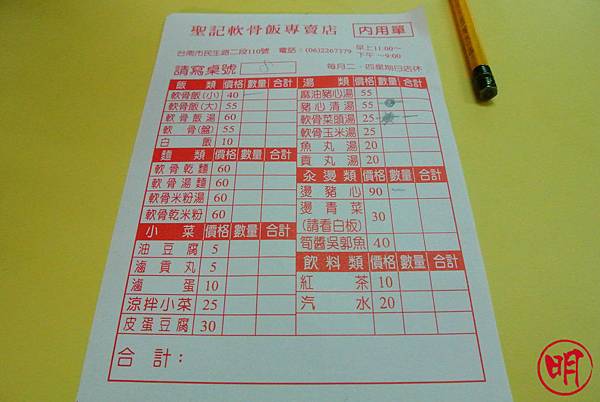 聖記軟骨飯專賣店 內用單
台南市民生路二段110號 電話：(06)2267379 早上11:00～
下午～9:00
請寫桌號 5 每月二、四星期日店休
飯類 價格 數量 合計
軟骨飯(小) 40 一
軟骨飯(大) 55
軟骨飯湯 60
軟骨(盤) 55
白飯 10
麵類 價格 數量 合計
軟骨乾麵 60
軟骨湯麵 60
軟骨米粉湯 60
軟骨乾米粉 60
小菜 價格 數量 合計
油豆腐 5
滷貢丸 5
滷蛋 10
涼拌小菜 25
皮蛋豆腐 30
湯類 價格 數量 合計
麻油豬心湯 55
豬心清湯 55
軟骨菜頭湯 25
軟骨玉米湯 25
魚丸湯 20
貢丸湯 20
汆燙類 價格 數量 合計
燙豬心 90 一
燙青菜
(請看白板) 30
筍醬吳郭魚 40
飲料類 價格 數量 合計
紅茶 10
汽水 20
合計：
明